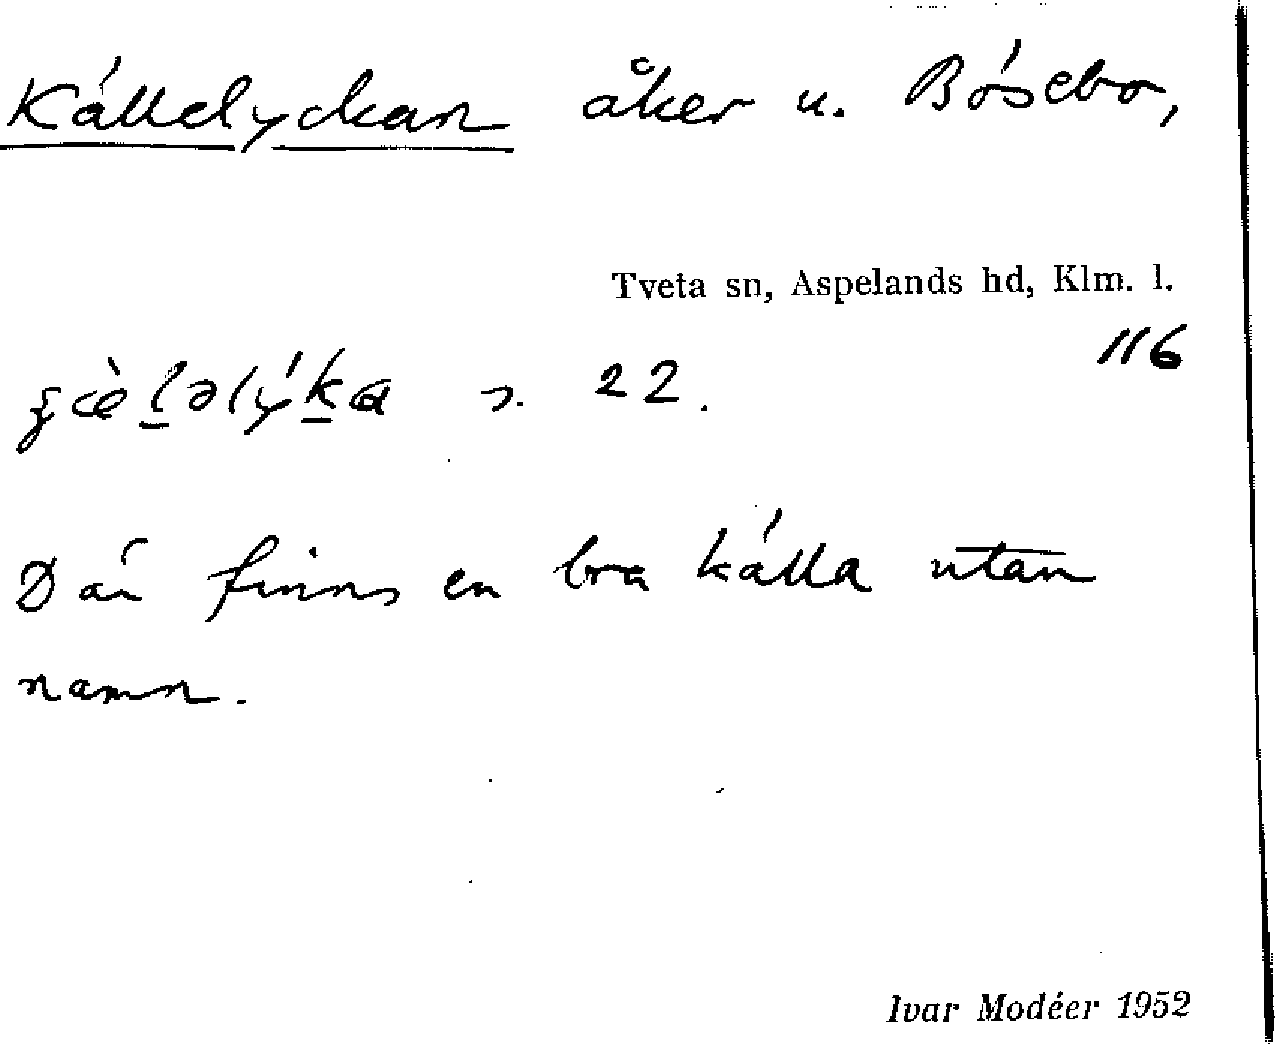 Källelyckan åker u. Bösebo,
Tveta sn, Aspelands hd, Klm. l.
116
s. 22.
Där finns en bra källa utan
namn.
Ivar Modéer 1952